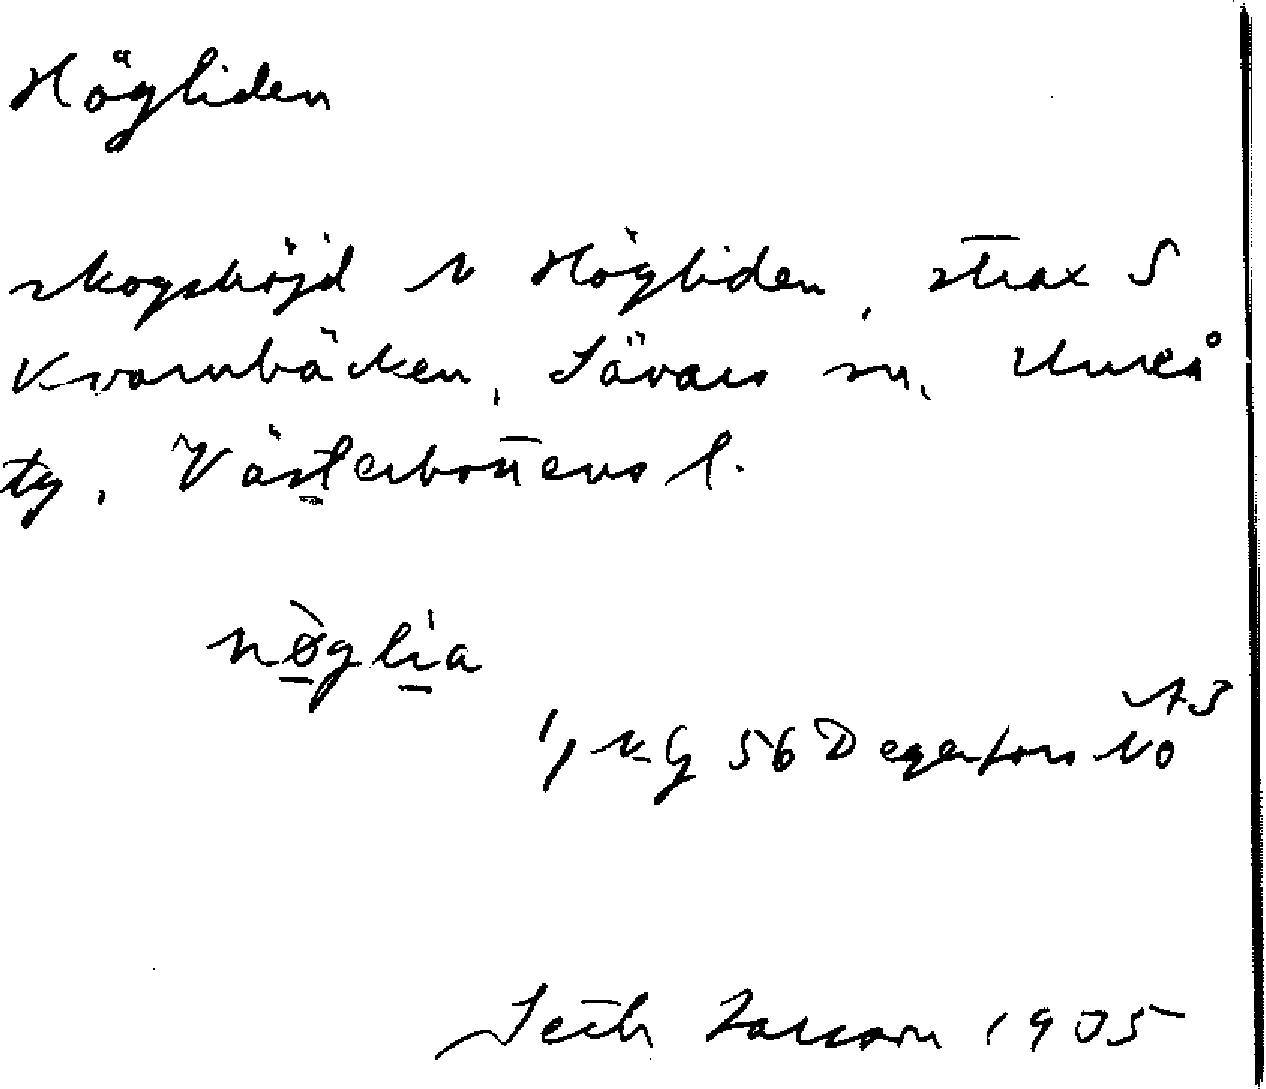 Högliden
skogshöjd N Högliden, strax S
Kvarnbäcken, Sävars sn, Umeå
tg, Västerbottens l.
hø̀glía
56 Degerfors NO
Seth Larsson 1905